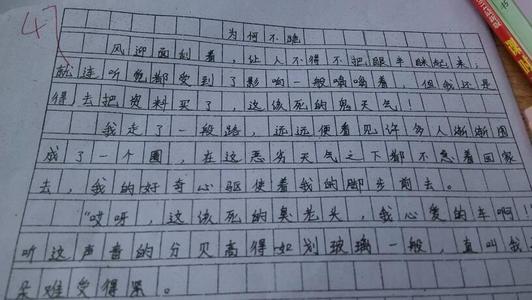 47
为何不跪
风迎面刮着，让人不得不把眼半眯起来，
就连听觉都受到了影响一般嗡嗡着，但我还是
得去把资料买了，这该死的鬼天气！
我走了一般路，远远便看见许多人渐渐围
成了一个圈，在这恶劣天气之下都不急着回家
去，我的好奇心驱使着我的脚步前去。
“哎呀，这该死的臭老头，我心爱的车啊
听这声音的分贝高得如划玻璃一般，直叫我
朵难受得紧。